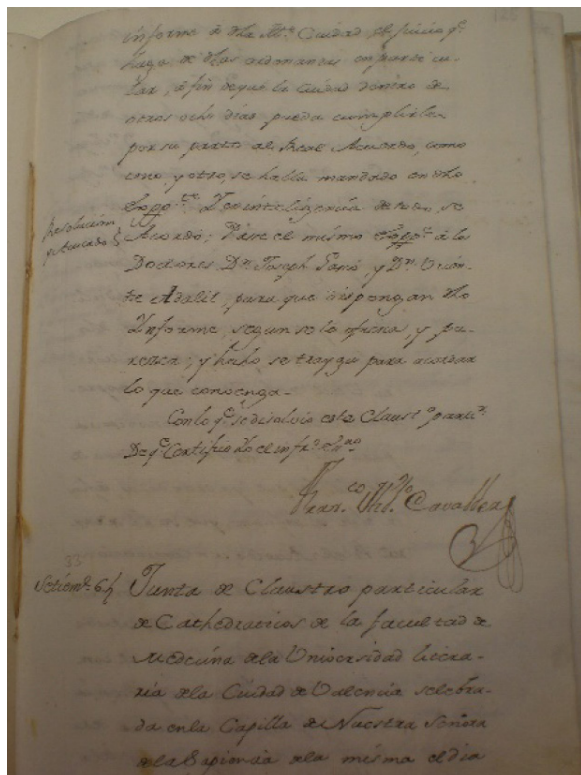 126
informe à dha Mᵉ Ciudad, el juicio qᵉ
haga de dhas ordenanzas en particu-
lar, à fin de que la Ciudad dentro de
otros ocho dias pueda cumplirlea
por su parte al Real Acuerdo, como
uno, y otro, se halla mandado en dho
Exppᵗᵉ. Y de inteligencia de todo, se
Resolucion
y Acuerdo
Acordó; Páse el mismo Exppᵗᵉ à los
Doctores Dⁿ. Joseph Gascó, y Dⁿ. Vicen-
te Adalil, para que dispongan dho
Informe, segun se les ofresca, y pa-
resca; y hecho, se trayga para acordar
lo que convenga.
Con lo qᵉ se disolvió este Claustᵒ partiʳ.
De qᵉ Certifico Yo el infrᵒ Sʳⁱᵒ
Franᶜᵒ Cavaller
33
Setiemᵉ. 6
Junta de Claustro particular
de Cathedraticos de la facultad de
Medecina de la Universidad litera-
ria de la Ciudad de Valencia celebra-
da en la Capilla de Nuestra Señora
de la Sapiencia de la misma el dia